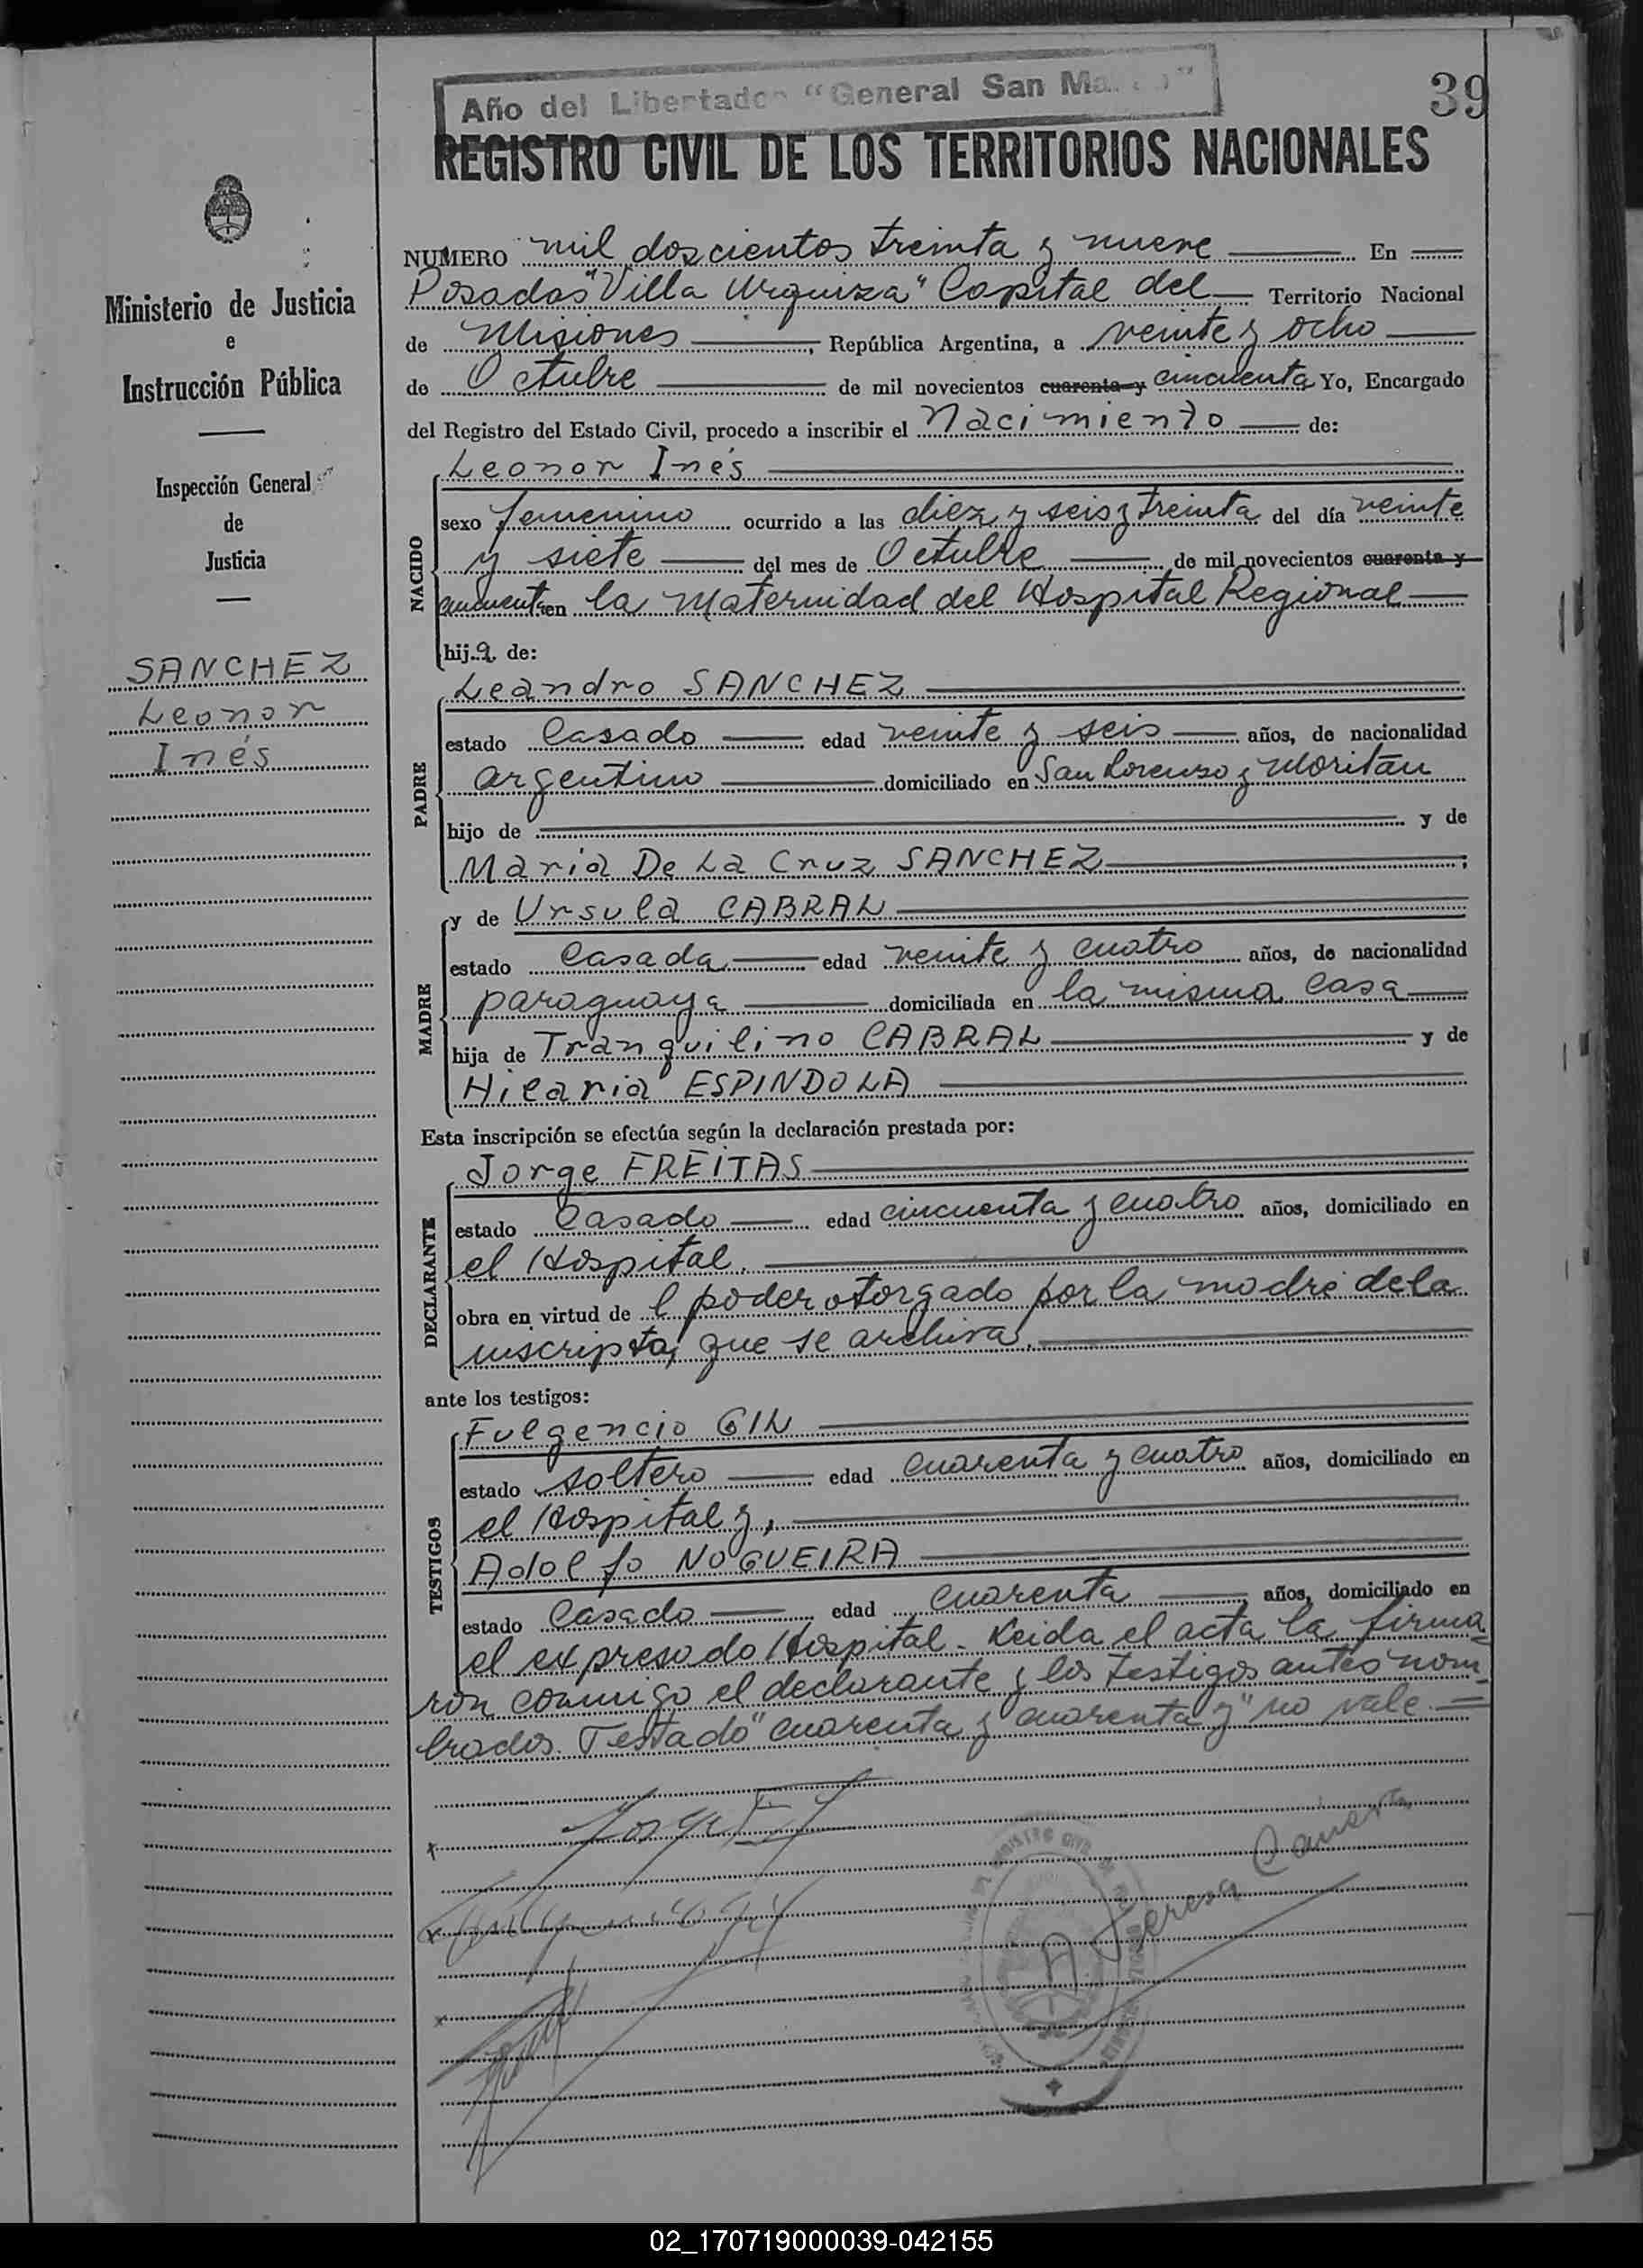 Año del Libertador "General San Martín"
39
REGISTRO CIVIL DE LOS TERRITORIOS NACIONALES
Ministerio de Justicia
e
Instrucción Pública
Inspección General
de
Justicia
SANCHEZ
Leonor
Inés
NUMERO mil doscientos treinta y nueve En
Posadas "Villa Urquiza" Capital del Territorio Nacional
de Misiones, República Argentina, a veinte y ocho
de Octubre de mil novecientos cuarenta y cincuenta Yo, Encargado
del Registro del Estado Civil, procedo a inscribir el Nacimiento de:
NACIDO
Leonor Inés
sexo femenino ocurrido a las diez y seis y treinta del día veinte
y siete del mes de Octubre de mil novecientos cuarenta y
cincuenta en la Maternidad del Hospital Regional
hija de:
PADRE
Leandro SANCHEZ
estado Casado edad veinte y seis años, de nacionalidad
argentino domiciliado en San Lorenzo y Moritan
hijo de y de
Maria De La Cruz SANCHEZ;
MADRE
y de Ursula CABRAL
estado Casada edad veinte y cuatro años, de nacionalidad
paraguaya domiciliada en la misma casa
hija de Tranquilino CABRAL y de
Hilaria ESPINDOLA
Esta inscripción se efectúa según la declaración prestada por:
DECLARANTE
Jorge FREITAS
estado Casado edad cincuenta y cuatro años, domiciliado en
el Hospital.
obra en virtud de l poder otorgado por la madre de la
inscripta, que se archiva.
ante los testigos:
TESTIGOS
Fulgencio GIL
estado soltero edad cuarenta y cuatro años, domiciliado en
el Hospital y,
Adolfo NOGUEIRA
estado Casado edad cuarenta años, domiciliado en
el expresado Hospital. Leida el acta la firma=
ron conmigo el declarante y los testigos antes nom=
brados. Testado "cuarenta y cuarenta y" no vale.=
Jorge F
A. Teresa
02_170719000039-042155